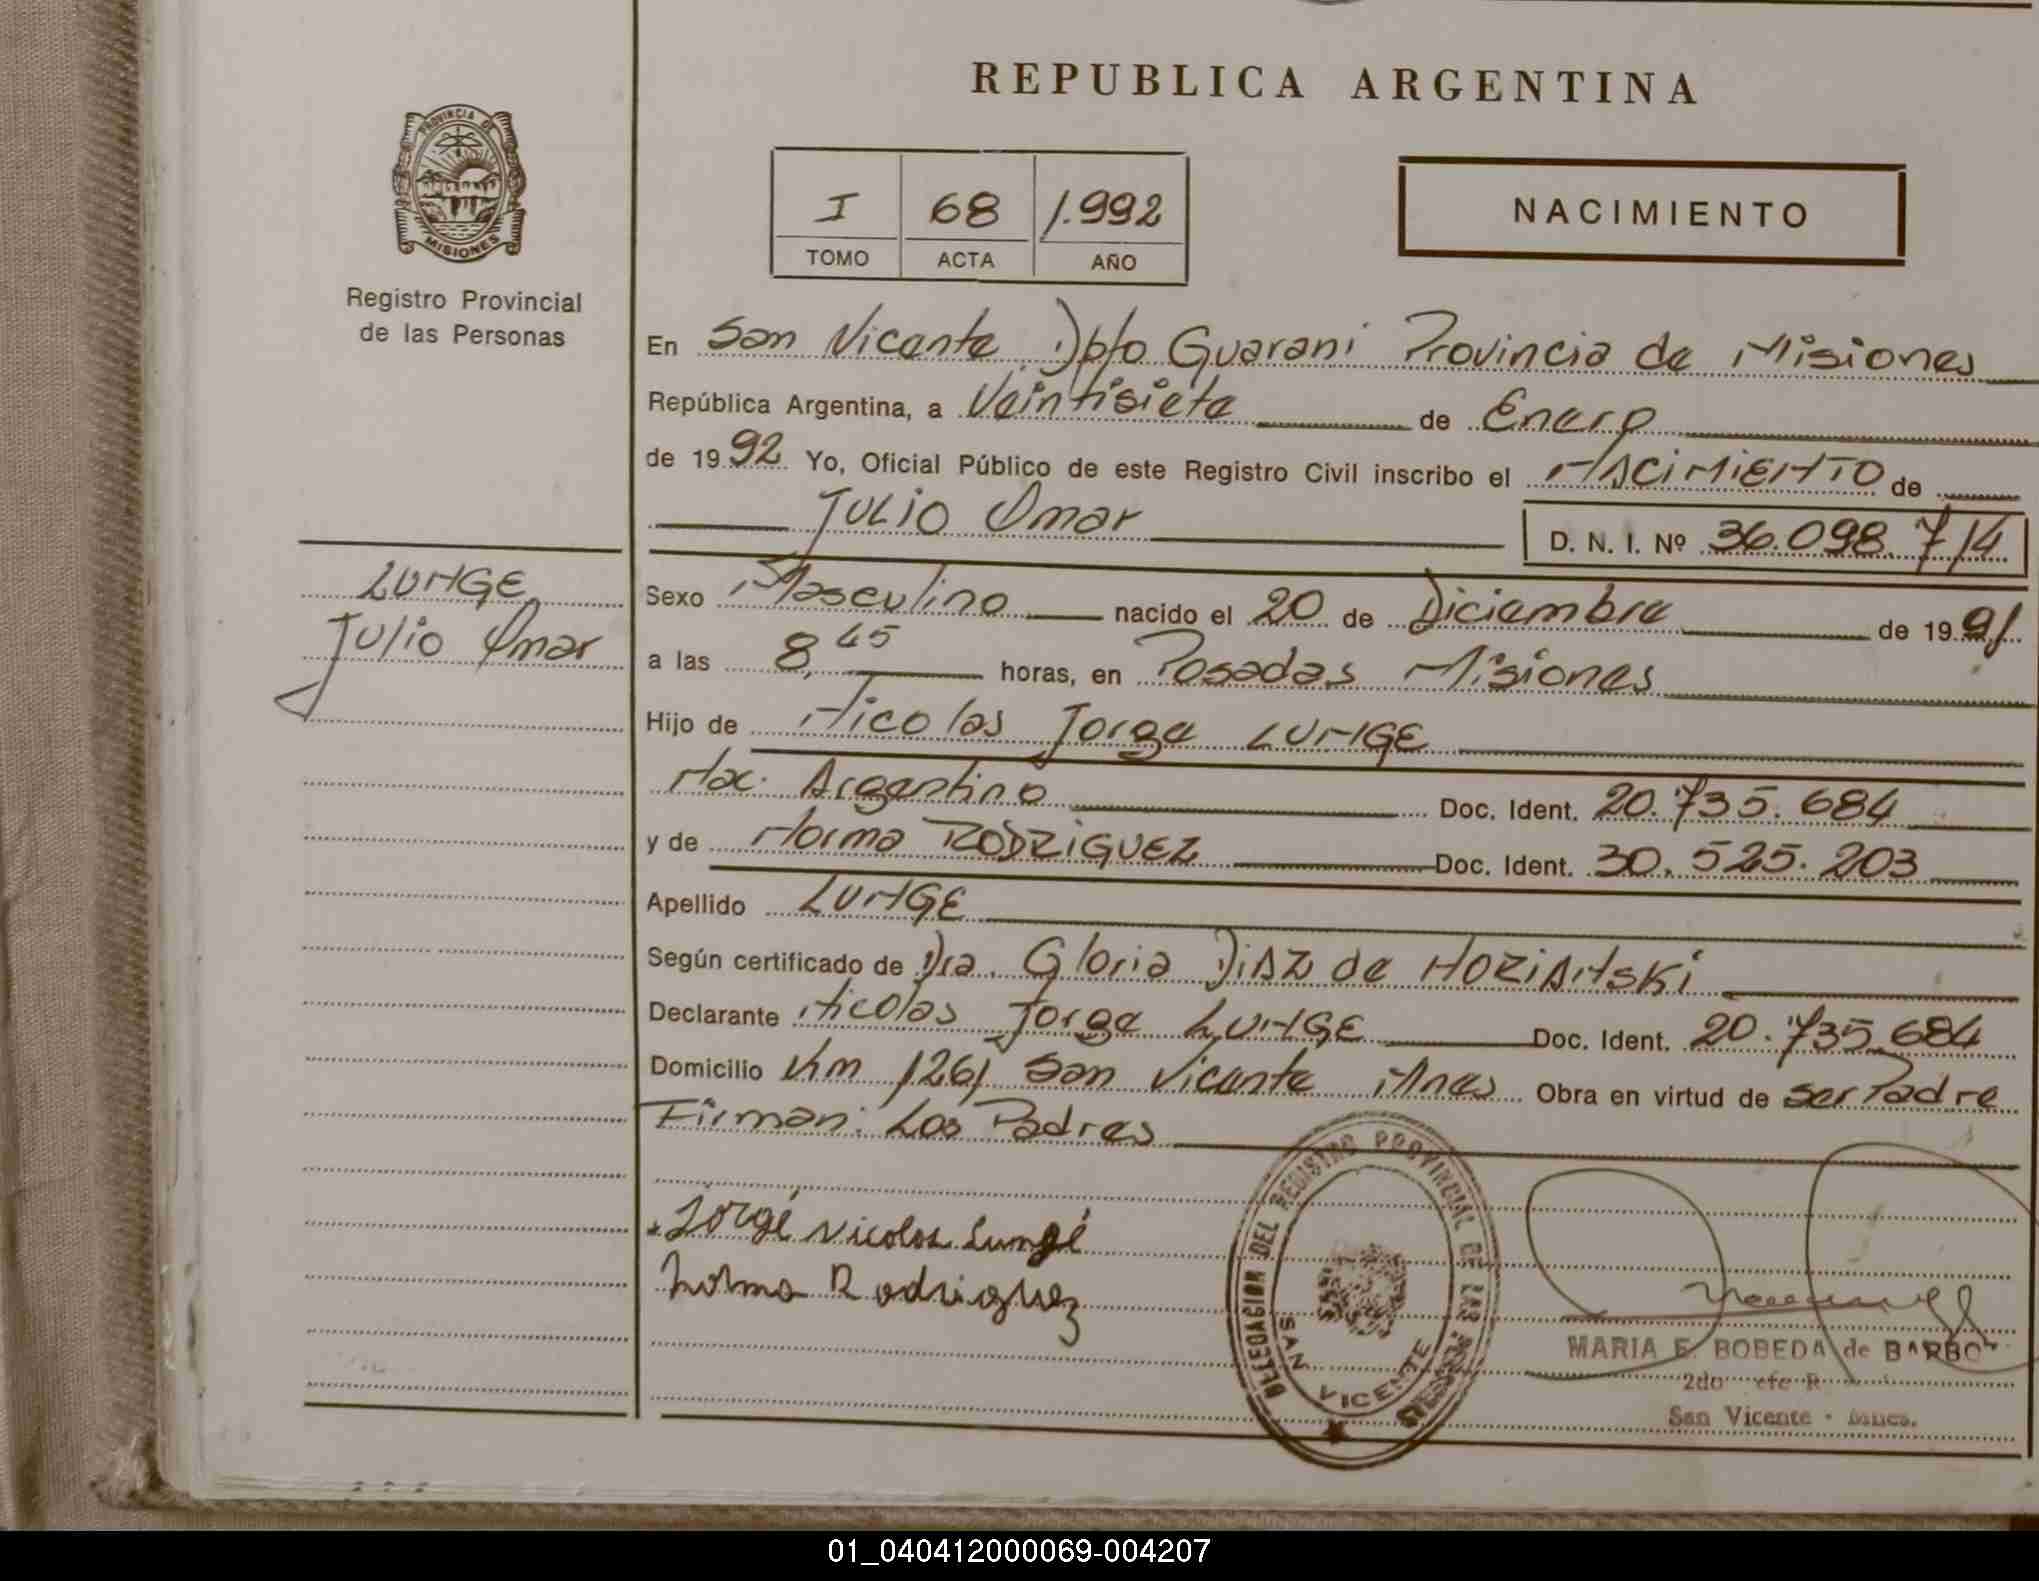 REPUBLICA ARGENTINA
PROVINCIA DE
MISIONES
Registro Provincial
de las Personas
I 68 1.992
TOMO ACTA AÑO
NACIMIENTO
En San Vicente Dpto Guarani Provincia de Misiones
República Argentina, a Veintisiete de Enero
de 1992 Yo, Oficial Público de este Registro Civil inscribo el NACIMIENTO de
Julio Omar D. N. I. Nº 36.098.714
LUNGE
Julio Omar
Sexo Masculino nacido el 20 de Diciembre de 1991
a las 8,45 horas, en Posadas Misiones
Hijo de Nicolas Jorge LUNGE
Nac. Argentino Doc. Ident. 20.735.684
y de Norma RODRIGUEZ Doc. Ident. 30.525.203
Apellido LUNGE
Según certificado de Dra. Gloria DIAZ de
Declarante Nicolas Jorge LUNGE Doc. Ident. 20.735.684
Domicilio Km 1261 San Vicente Mnes Obra en virtud de ser Padre
Firman: Los Padres
Jorge Nicolas Lunge
Norma Rodriguez
DELEGACION DEL REGISTRO PROVINCIAL DE LAS
SAN VICENTE
MARIA E. BOBEDA de
San Vicente - Mnes.
01_040412000069-004207